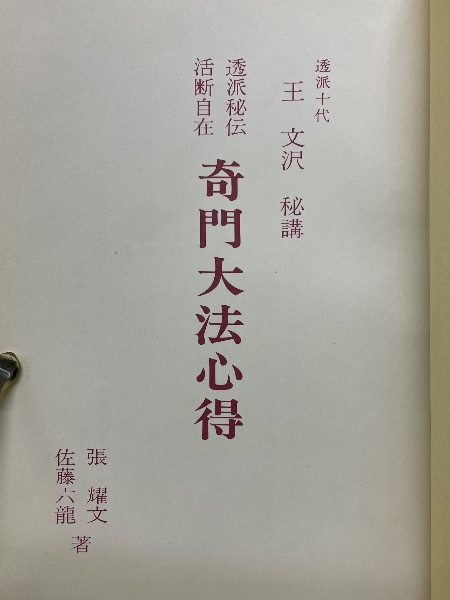 透派十代
王文沢 秘講
透派秘伝
活断自在
奇門大法心得
張耀文
佐藤六龍
著